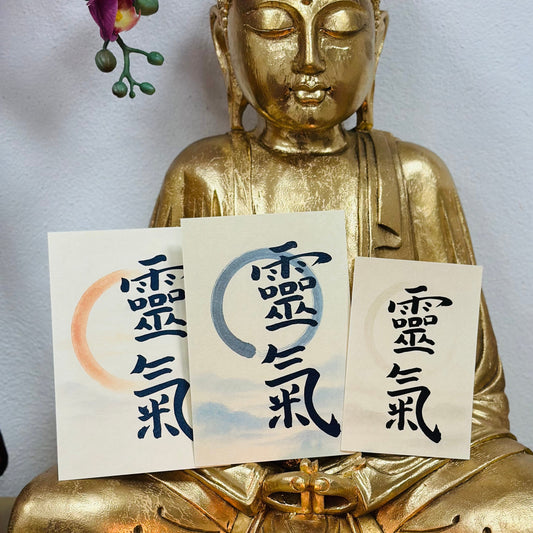 靈氣
靈氣
靈氣